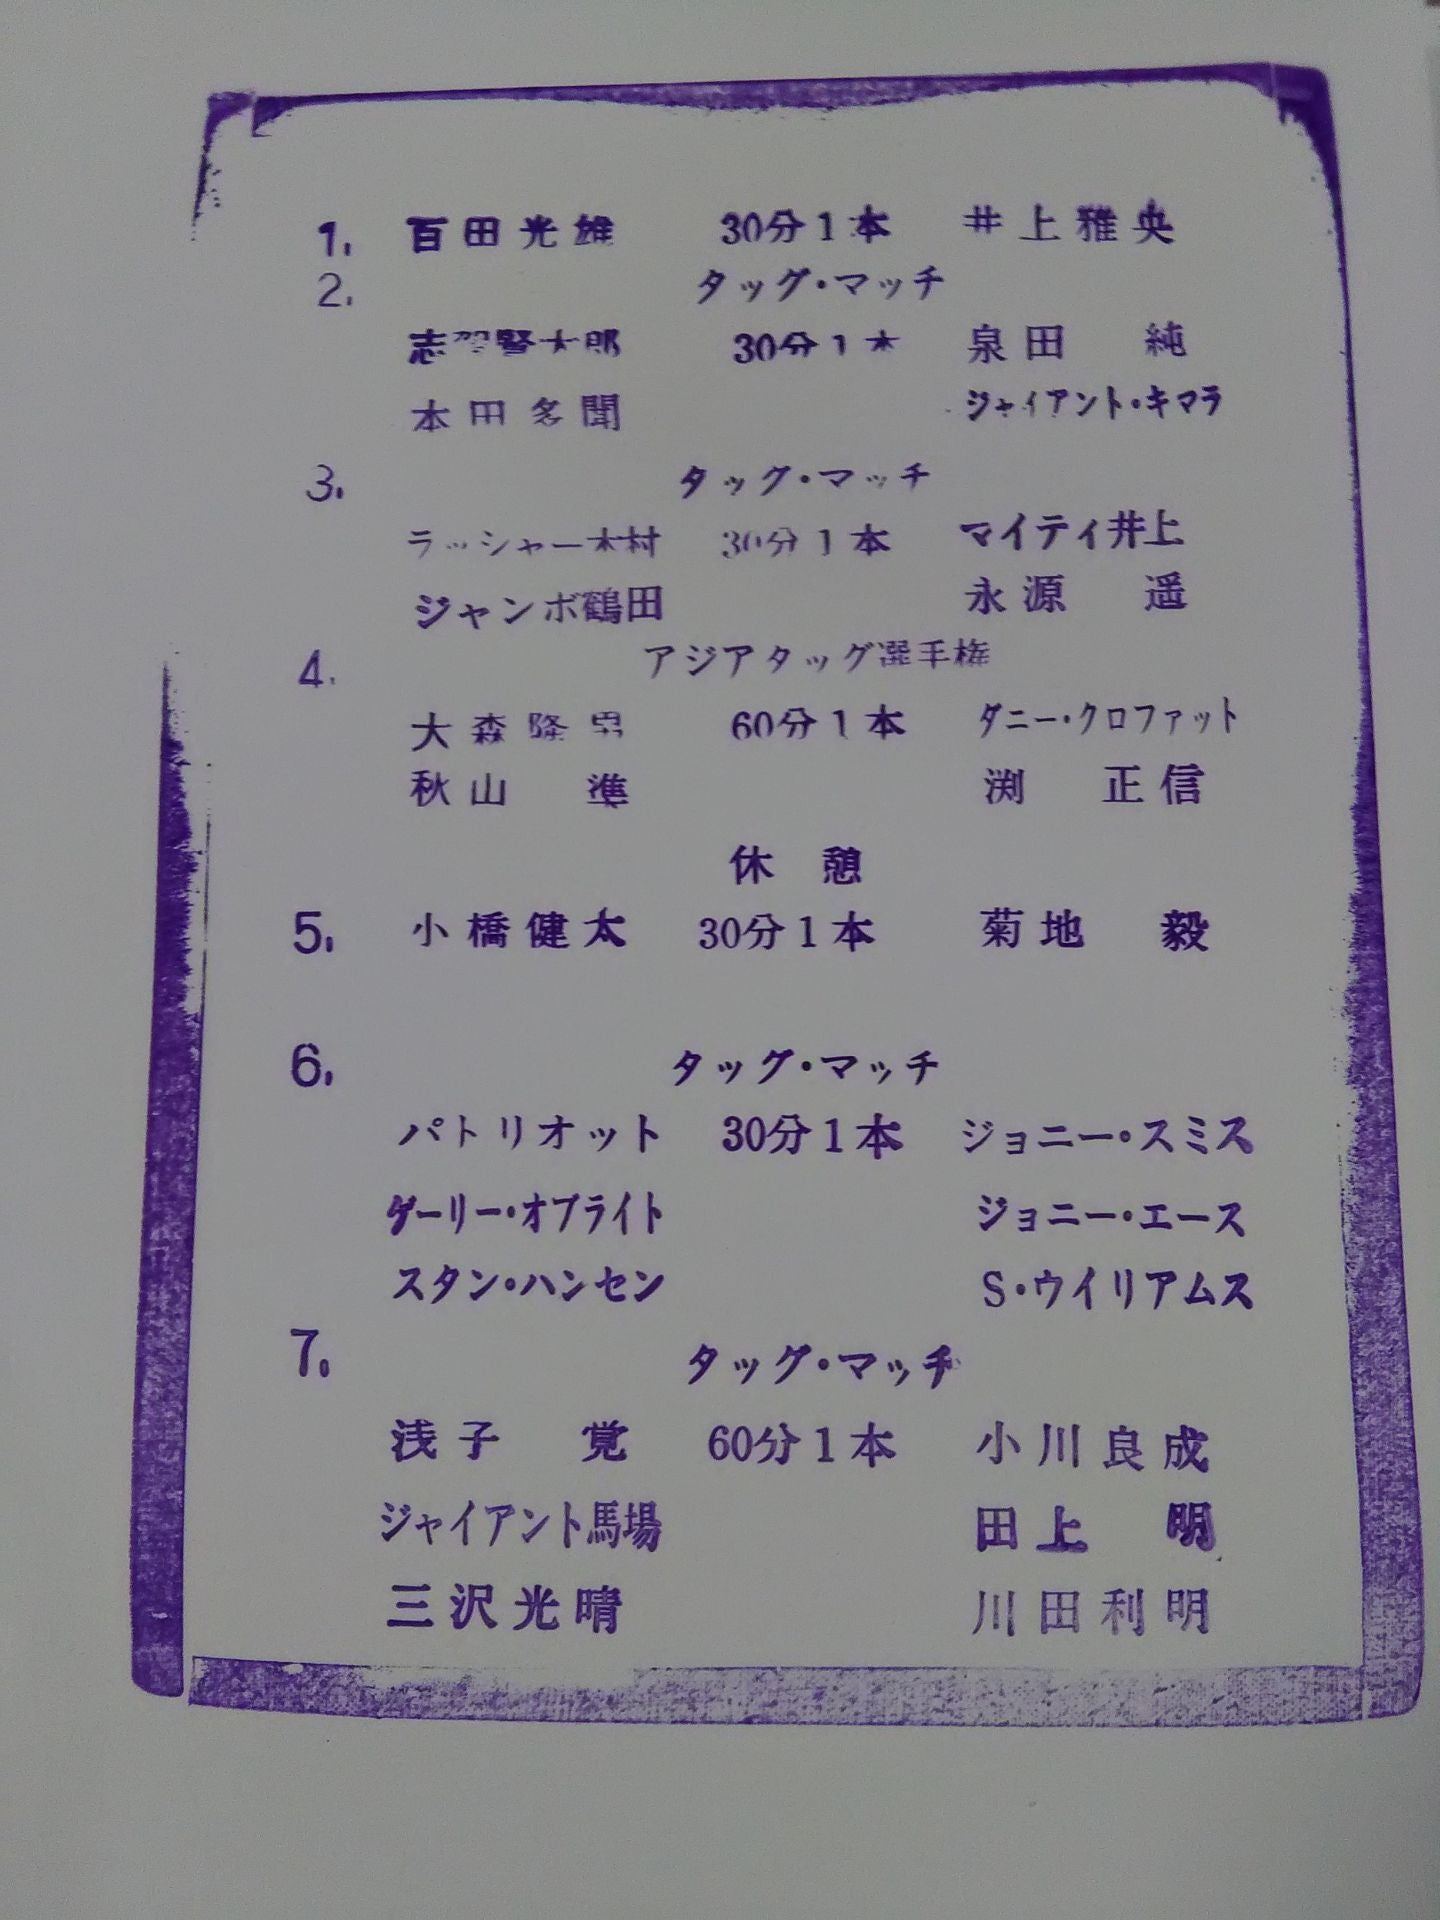 1. 百田光雄 30分1本 井上雅央
2. タッグ・マッチ
志賀賢太郎 30分1本 泉田 純
本田多聞 ジャイアント・キマラ
3. タッグ・マッチ
ラッシャー木村 30分1本 マイティ井上
ジャンボ鶴田 永源 遥
4. アジアタッグ選手権
大森隆男 60分1本 ダニー・クロファット
秋山 準 渕 正信
休憩
5. 小橋健太 30分1本 菊地 毅
6. タッグ・マッチ
パトリオット 30分1本 ジョニー・スミス
ゲーリー・オブライト ジョニー・エース
スタン・ハンセン S・ウイリアムス
7. タッグ・マッチ
浅子 覚 60分1本 小川良成
ジャイアント馬場 田上 明
三沢光晴 川田利明